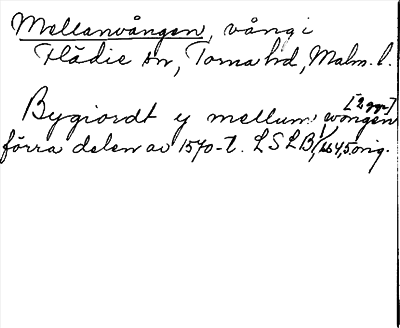 Mellanvången, vång i
Flädie sn, Torna hd, Malm. l.
[2 ggr]
Bygiordt y mellum wongen
förra delen av 1570-t. LSLB